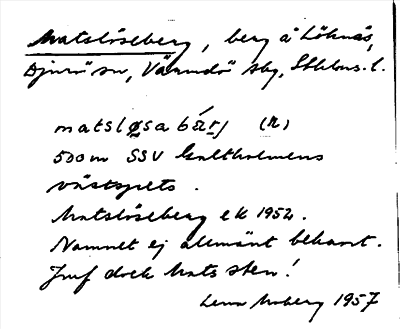 Matslöseberg, berg å Löknäs,
Djurö sn, Värmdö skg, Sthlms. l.
matsløsabärj (R)
500 m SSV Galtholmens
västspets.
Matslöseberg ek 1952.
Namnet ej allmänt bekant.
Jmf dock Mats sten!
Lena Moberg 1957